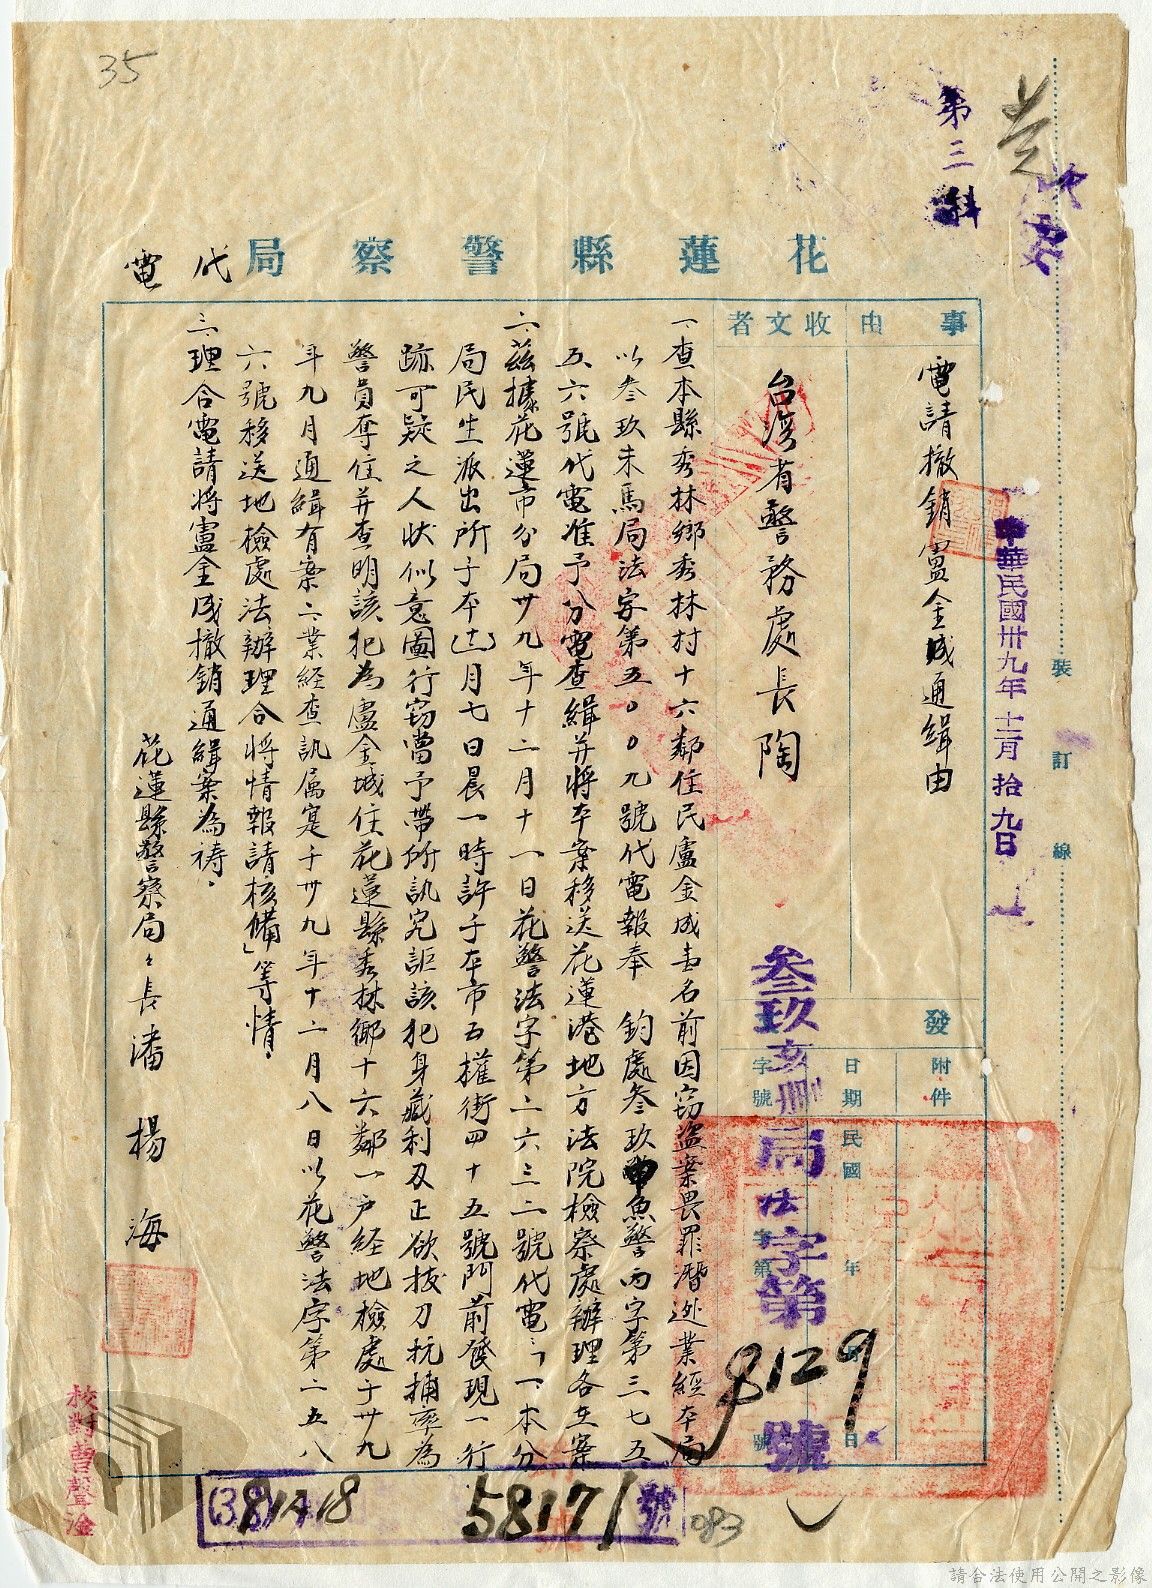 35
第三科
花蓮縣警察局代電
事由
電請撤銷盧金成通緝由
收文者
台湾省警務處長陶
發
附件
日期
民國
年
月
日
字號
字第
號
叁玖亥刪局法字第8129號
中華民國卅九年十二月拾九日
裝
訂
線
一、查本縣秀林鄉秀林村十六鄰住民盧金成壱名前因窃盜案畏罪潛逃業經本局
以叁玖未馬局法字第五００九號代電報奉 鈞處叁玖申魚警丙字第三七五
五六號代電准予分電查緝并將本案移送花蓮港地方法院檢察處辦理各在案
二、茲據花蓮市分局卅九年十二月十一日花警法字第二六三二號代電：「一、本分
局民生派出所于本(十二)月七日晨一時許于本市五權街四十五號門前發現一行
跡可疑之人狀似意圖行窃當予帶所訊究詎該犯身藏利刃正欲拔刀抗捕率為
警員奪住并查明該犯為盧金城住花蓮縣秀林鄉十六鄰一戶経地檢處于卅九
年九月通緝有案二、業経查訊属寔于卅九年十二月八日以花警法字第二五八
六號移送地檢處法辦理合將情報請核備」等情。
三、理合電請將盧金成撤銷通緝案為祷。
花蓮縣警察局々長潘 楊 海
校對曹聲淦
58171號
083
請合法使用公開之影像